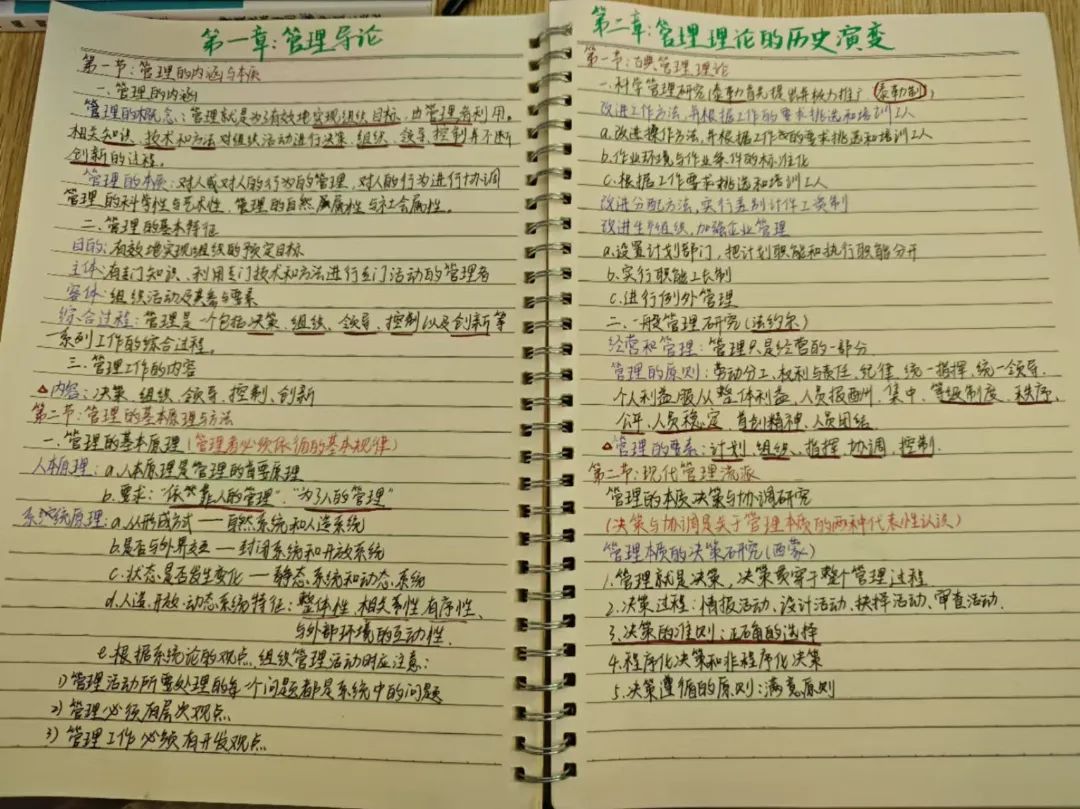 第一章:管理导论
第一节:管理的内涵与本质
一、管理的内涵
管理的概念:管理就是为了有效地实现组织目标,由管理者利用
相关知识、技术和方法对组织活动进行决策、组织、领导、控制并不断
创新的过程。
管理的本质:对人或对人的行为的管理,对人的行为进行协调
管理的科学性与艺术性,管理的自然属性与社会属性。
二、管理的基本特征
目的:有效地实现组织的预定目标
主体:有专门知识、利用专门技术和方法进行专门活动的管理者
客体:组织活动及其参与要素
综合过程:管理是一个包括决策、组织、领导、控制以及创新等
一系列工作的综合过程。
三、管理工作的内容
△内容:决策、组织、领导、控制、创新
第二节:管理的基本原理与方法
一、管理的基本原理(管理者必须依循的基本规律)
人本原理:a.人本原理是管理的首要原理
b.要求:"依靠人的管理""为了人的管理"
系统原理:a.从形成方式——自然系统和人造系统
b.是否与外界交互——封闭系统和开放系统
c.状态是否发生变化——静态系统和动态系统
d.人造、开放、动态系统特征:整体性、相关性、有序性、
与外部环境的互动性
e.根据系统论的观点,组织管理活动时应注意:
1)管理活动所要处理的每一个问题都是系统中的问题
2)管理必须有层次观点
3)管理工作必须有开发观点
第二章:管理理论的历史演变
第一节:古典管理理论
一、科学管理研究(泰勒首先提出并极力推广 泰勒制)
改进工作方法,并根据工作的要求挑选和培训工人
a.改进操作方法,并根据工作的要求挑选和培训工人
b.作业环境与作业条件的标准化
c.根据工作要求挑选和培训工人
改进分配方法,实行差别计件工资制
改进生产组织,加强企业管理
a.设置计划部门,把计划职能和执行职能分开
b.实行职能工长制
c.进行例外管理
二、一般管理研究(法约尔)
经营和管理:管理只是经营的一部分
管理的原则:劳动分工、权利与责任、纪律、统一指挥、统一领导、
个人利益服从整体利益、人员报酬、集中、等级制度、秩序、
公平、人员稳定、首创精神、人员团结
△管理的要素:计划、组织、指挥、协调、控制
第二节:现代管理流派
管理的本质:决策与协调研究
(决策与协调是关于管理本质的两种代表性认识)
管理本质的决策研究(西蒙)
1.管理就是决策,决策贯穿于整个管理过程
2.决策过程:情报活动、设计活动、抉择活动、审查活动
3.决策的准则:正确的选择
4.程序化决策和非程序化决策
5.决策遵循的原则:满意原则